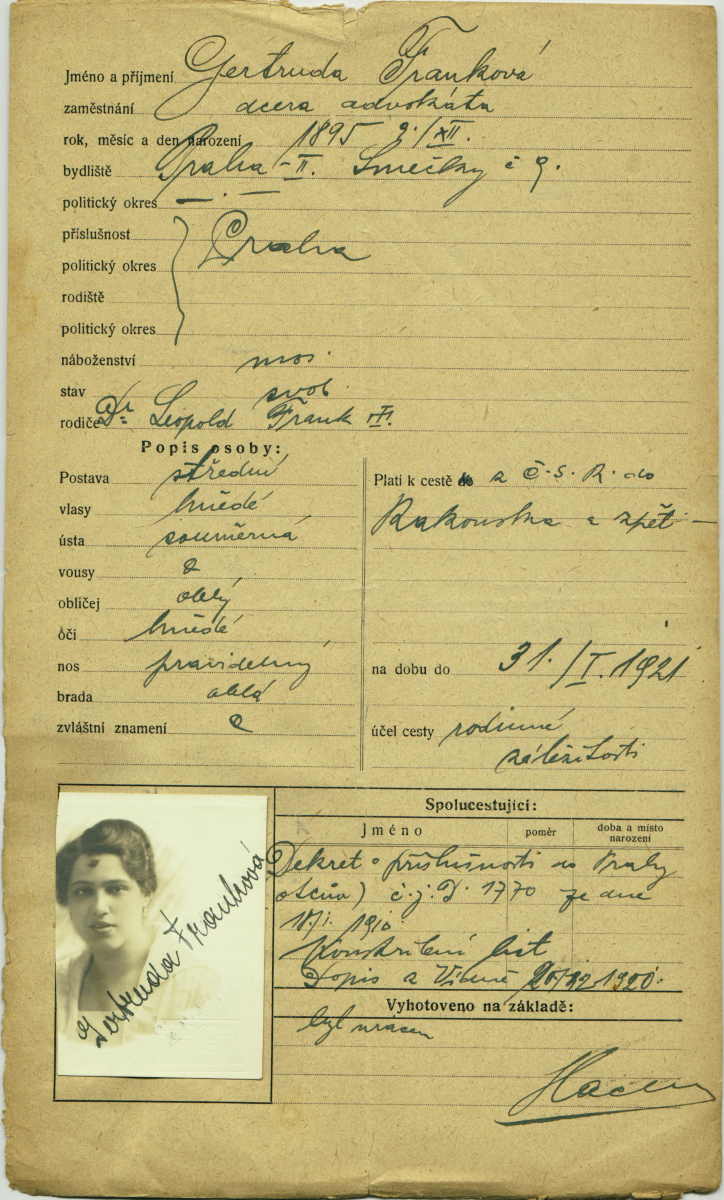 Jméno a příjmení Gertruda Franková
zaměstnání dcera advokáta
rok, měsíc a den narození 1895 2./XII.
bydliště Praha-II. Smečky č 9.
politický okres —.—
příslušnost
politický okres Praha
rodiště
politický okres
náboženství mos.
stav svob.
rodiče Dr Leopold Frank
Popis osoby:
Postava střední
vlasy hnědé
ústa souměrná
vousy
obličej oblý
óči hnědé
nos pravidelný
brada oblá
zvláštní znamení
Platí k cestě z Č.S.R. do
Rakouska a zpět —
na dobu do 31./I.1921
účel cesty rodinné
záležitosti
Gertruda Franková
Spolucestující:
Jméno poměr doba a místo narození
Dekret o příslušnosti do Prahy
otcův) č.j. D. 1770 ze dne
1910
Konskribční list
Dopis z Vídně 1920.
Vyhotoveno na základě:
byl vrácen